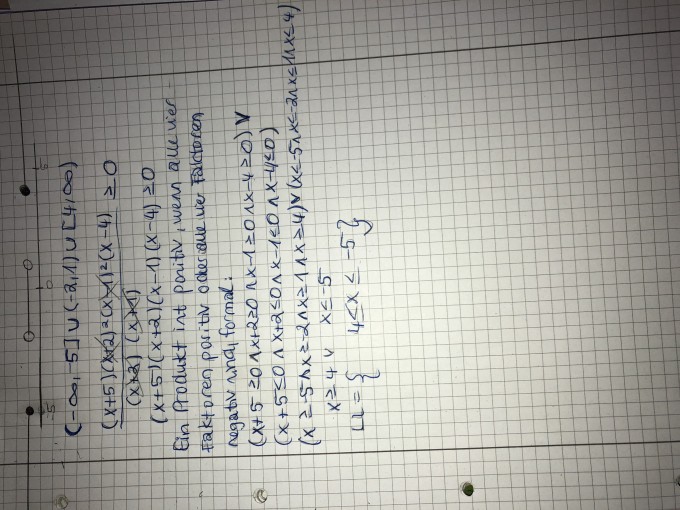 -5 0 5
(-∞, -5] ∪ (-2,1) ∪ [4,∞)
(x+5)(x+2)²(x-1)²(x-4) ≥ 0
(x+2) (x+1)
(x+5)(x+2)(x-1)(x-4) ≥ 0
Ein Produkt ist positiv, wenn alle vier
Faktoren positiv oder alle vier Faktoren
negativ sind, formal:
(x+5 ≥ 0 ∧ x+2 ≥ 0 ∧ x-1 ≥ 0 ∧ x-4 ≥ 0) ∨
(x+5 ≤ 0 ∧ x+2 ≤ 0 ∧ x-1 ≤ 0 ∧ x-4 ≤ 0)
(x ≥ -5 ∧ x ≥ -2 ∧ x ≥ 1 ∧ x ≥ 4) ∨ (x ≤ -5 ∧ x ≤ -2 ∧ x ≤ 1 ∧ x ≤ 4)
x ≥ 4 ∨ x ≤ -5
𝕃 = { 4 ≤ x ≤ -5 }